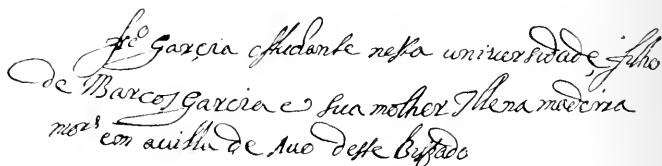 frco Garçia estudante nesta universidade, filho
de Marcos Garcia e sua molher Illena madeira
mors em a villa de Avo deste Bispado